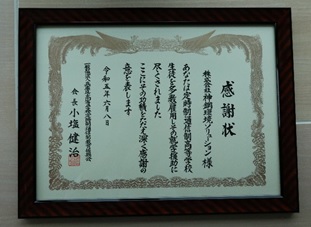 感謝状
株式会社神鋼環境ソリューション 様
あなたは定時制通信制高等学校
生徒を多数雇用しその就学援助に
尽くされました
ここにその功績をたたえ深く感謝の
意を表します
令和五年六月八日
会長 小塩健治